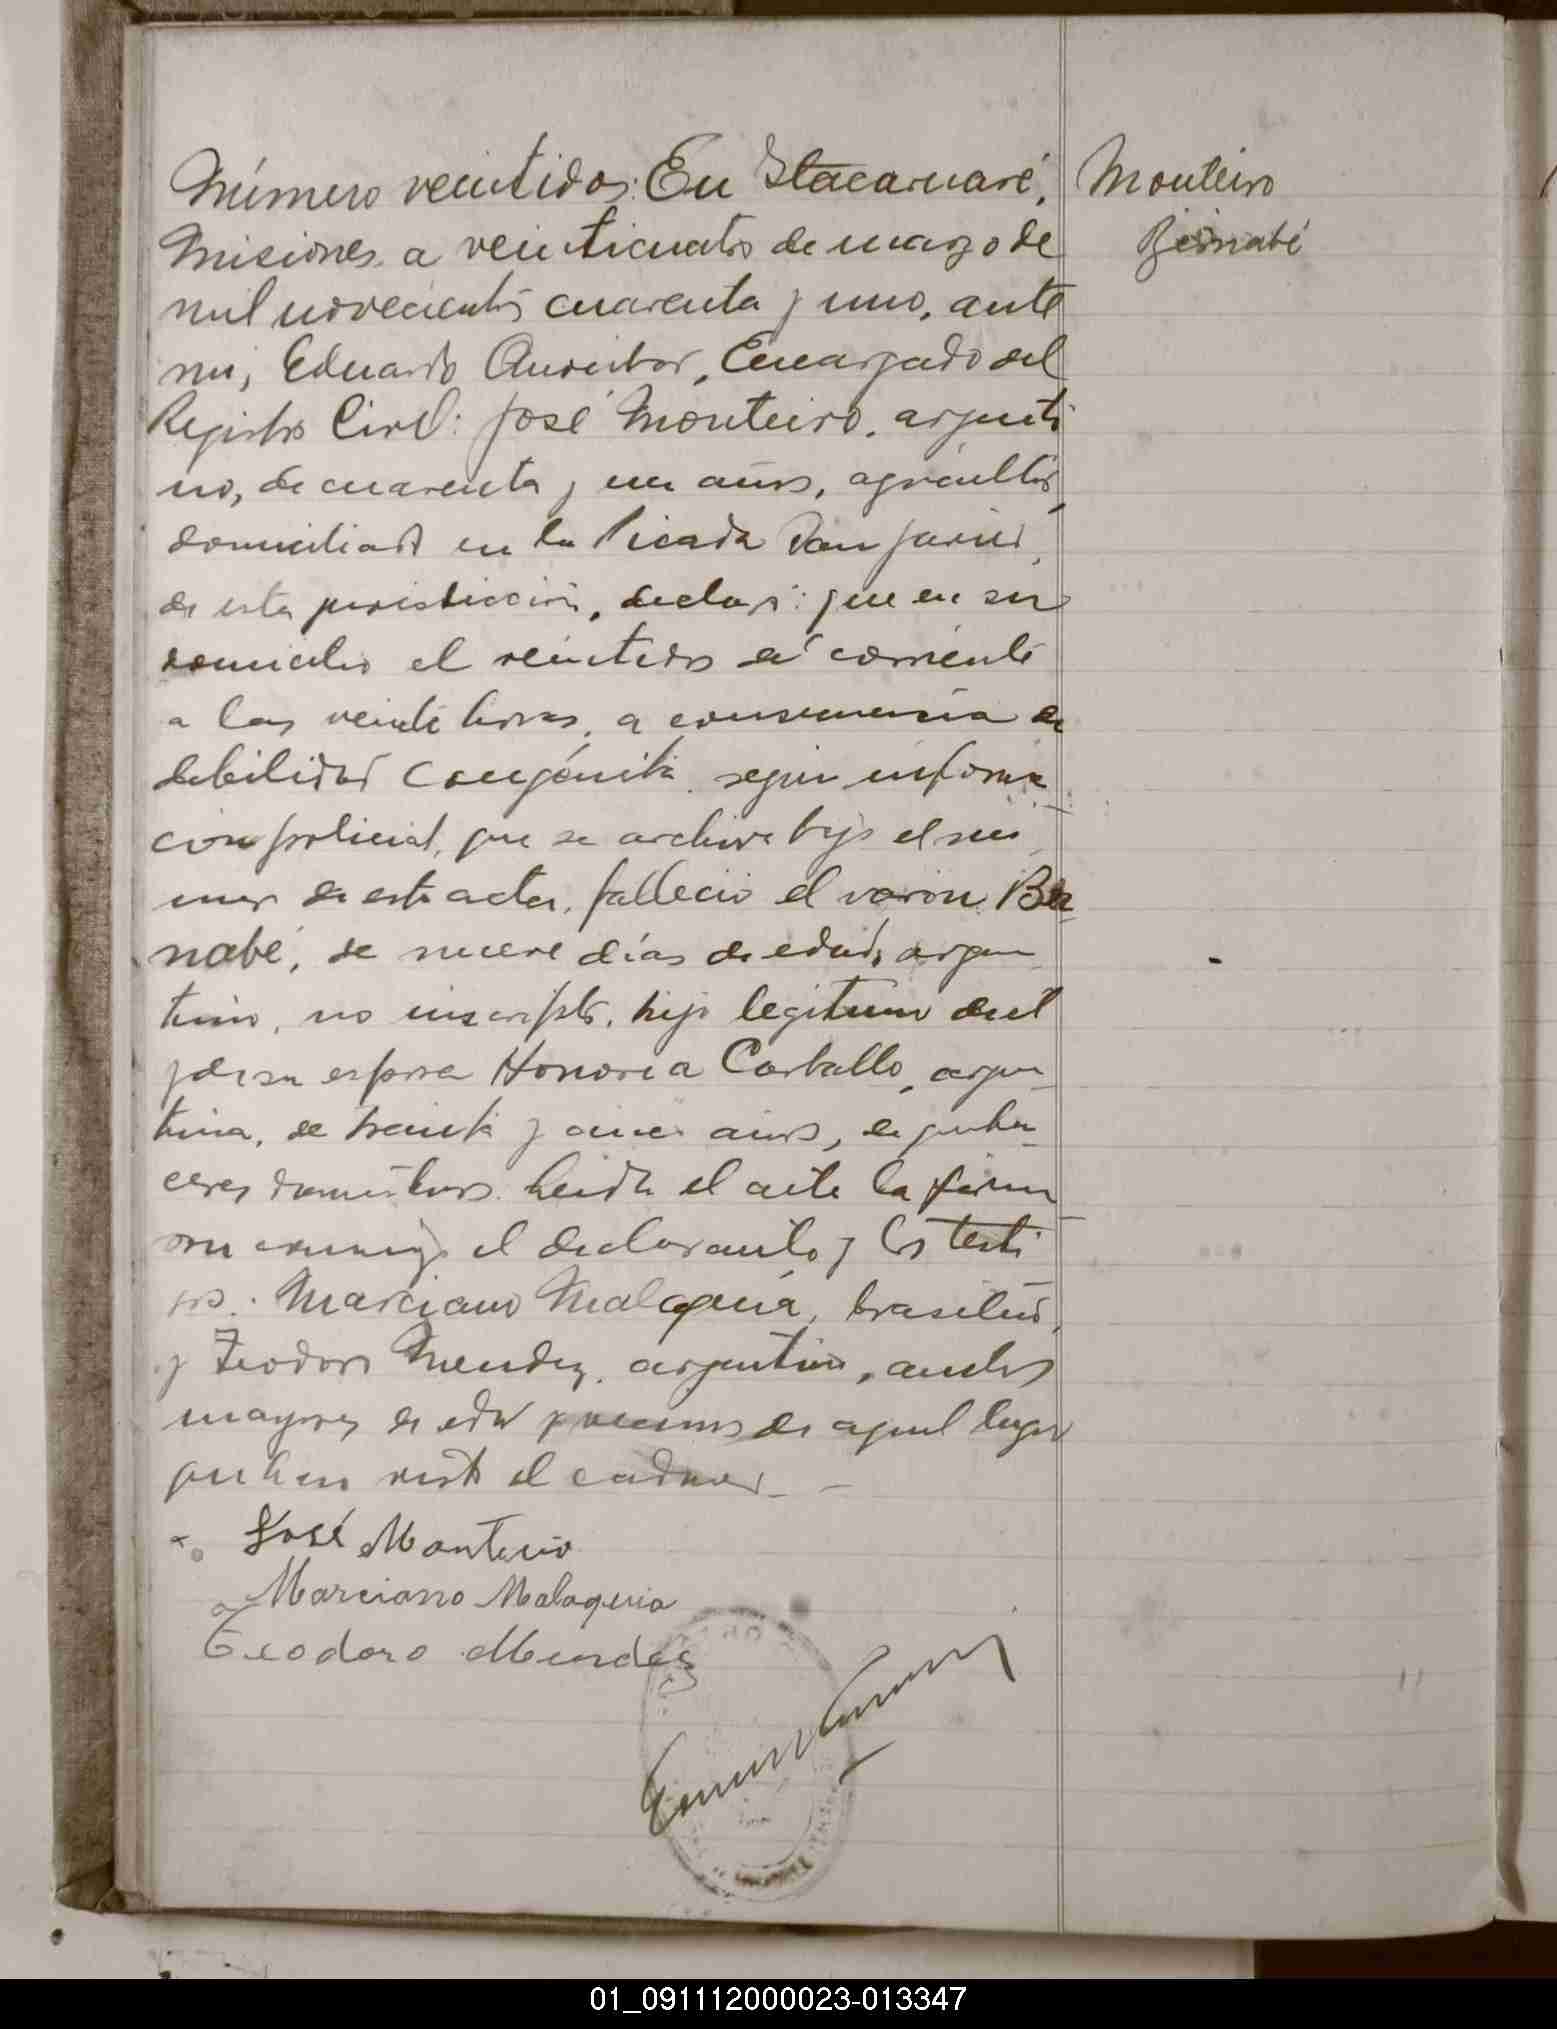 Número veintidos: En Itacaruaré,
Misiones a veinticuatro de marzo de
mil novecientos cuarenta y uno, ante
mi, Eduardo, Encargado del
Registro Civil: José Monteiro, argenti
no, de cuarenta y un años, agricultor,
domiciliado en la Picada San Javier,
de esta jurisdicción, declaró: que en su
domicilio el veintidos del corriente
a las veinte horas, a consecuencia de
debilidad congénita, segun informa
cion policial, que se archiva bajo el nú
mero de esta acta, falleció el varón Ber
nabé, de nueve días de edad, argen
tino, no inscripto, hijo legitimo del
y de su esposa Honoria Carballo, argen
tina, de treinta y cinco años, de queha
ceres domésticos. Leida el acta la firma
ron conmigo el declarante y los testi
gos: Marciano Malaquia, brasilero,
y Teodoro Mendez, argentino, ambos
mayores de edad y vecinos de aquel lugar
que han visto el cadaver
José Monteiro
Marciano Malaqueia
Teodoro Mendes
Monteiro
Bernabé
01_091112000023-013347